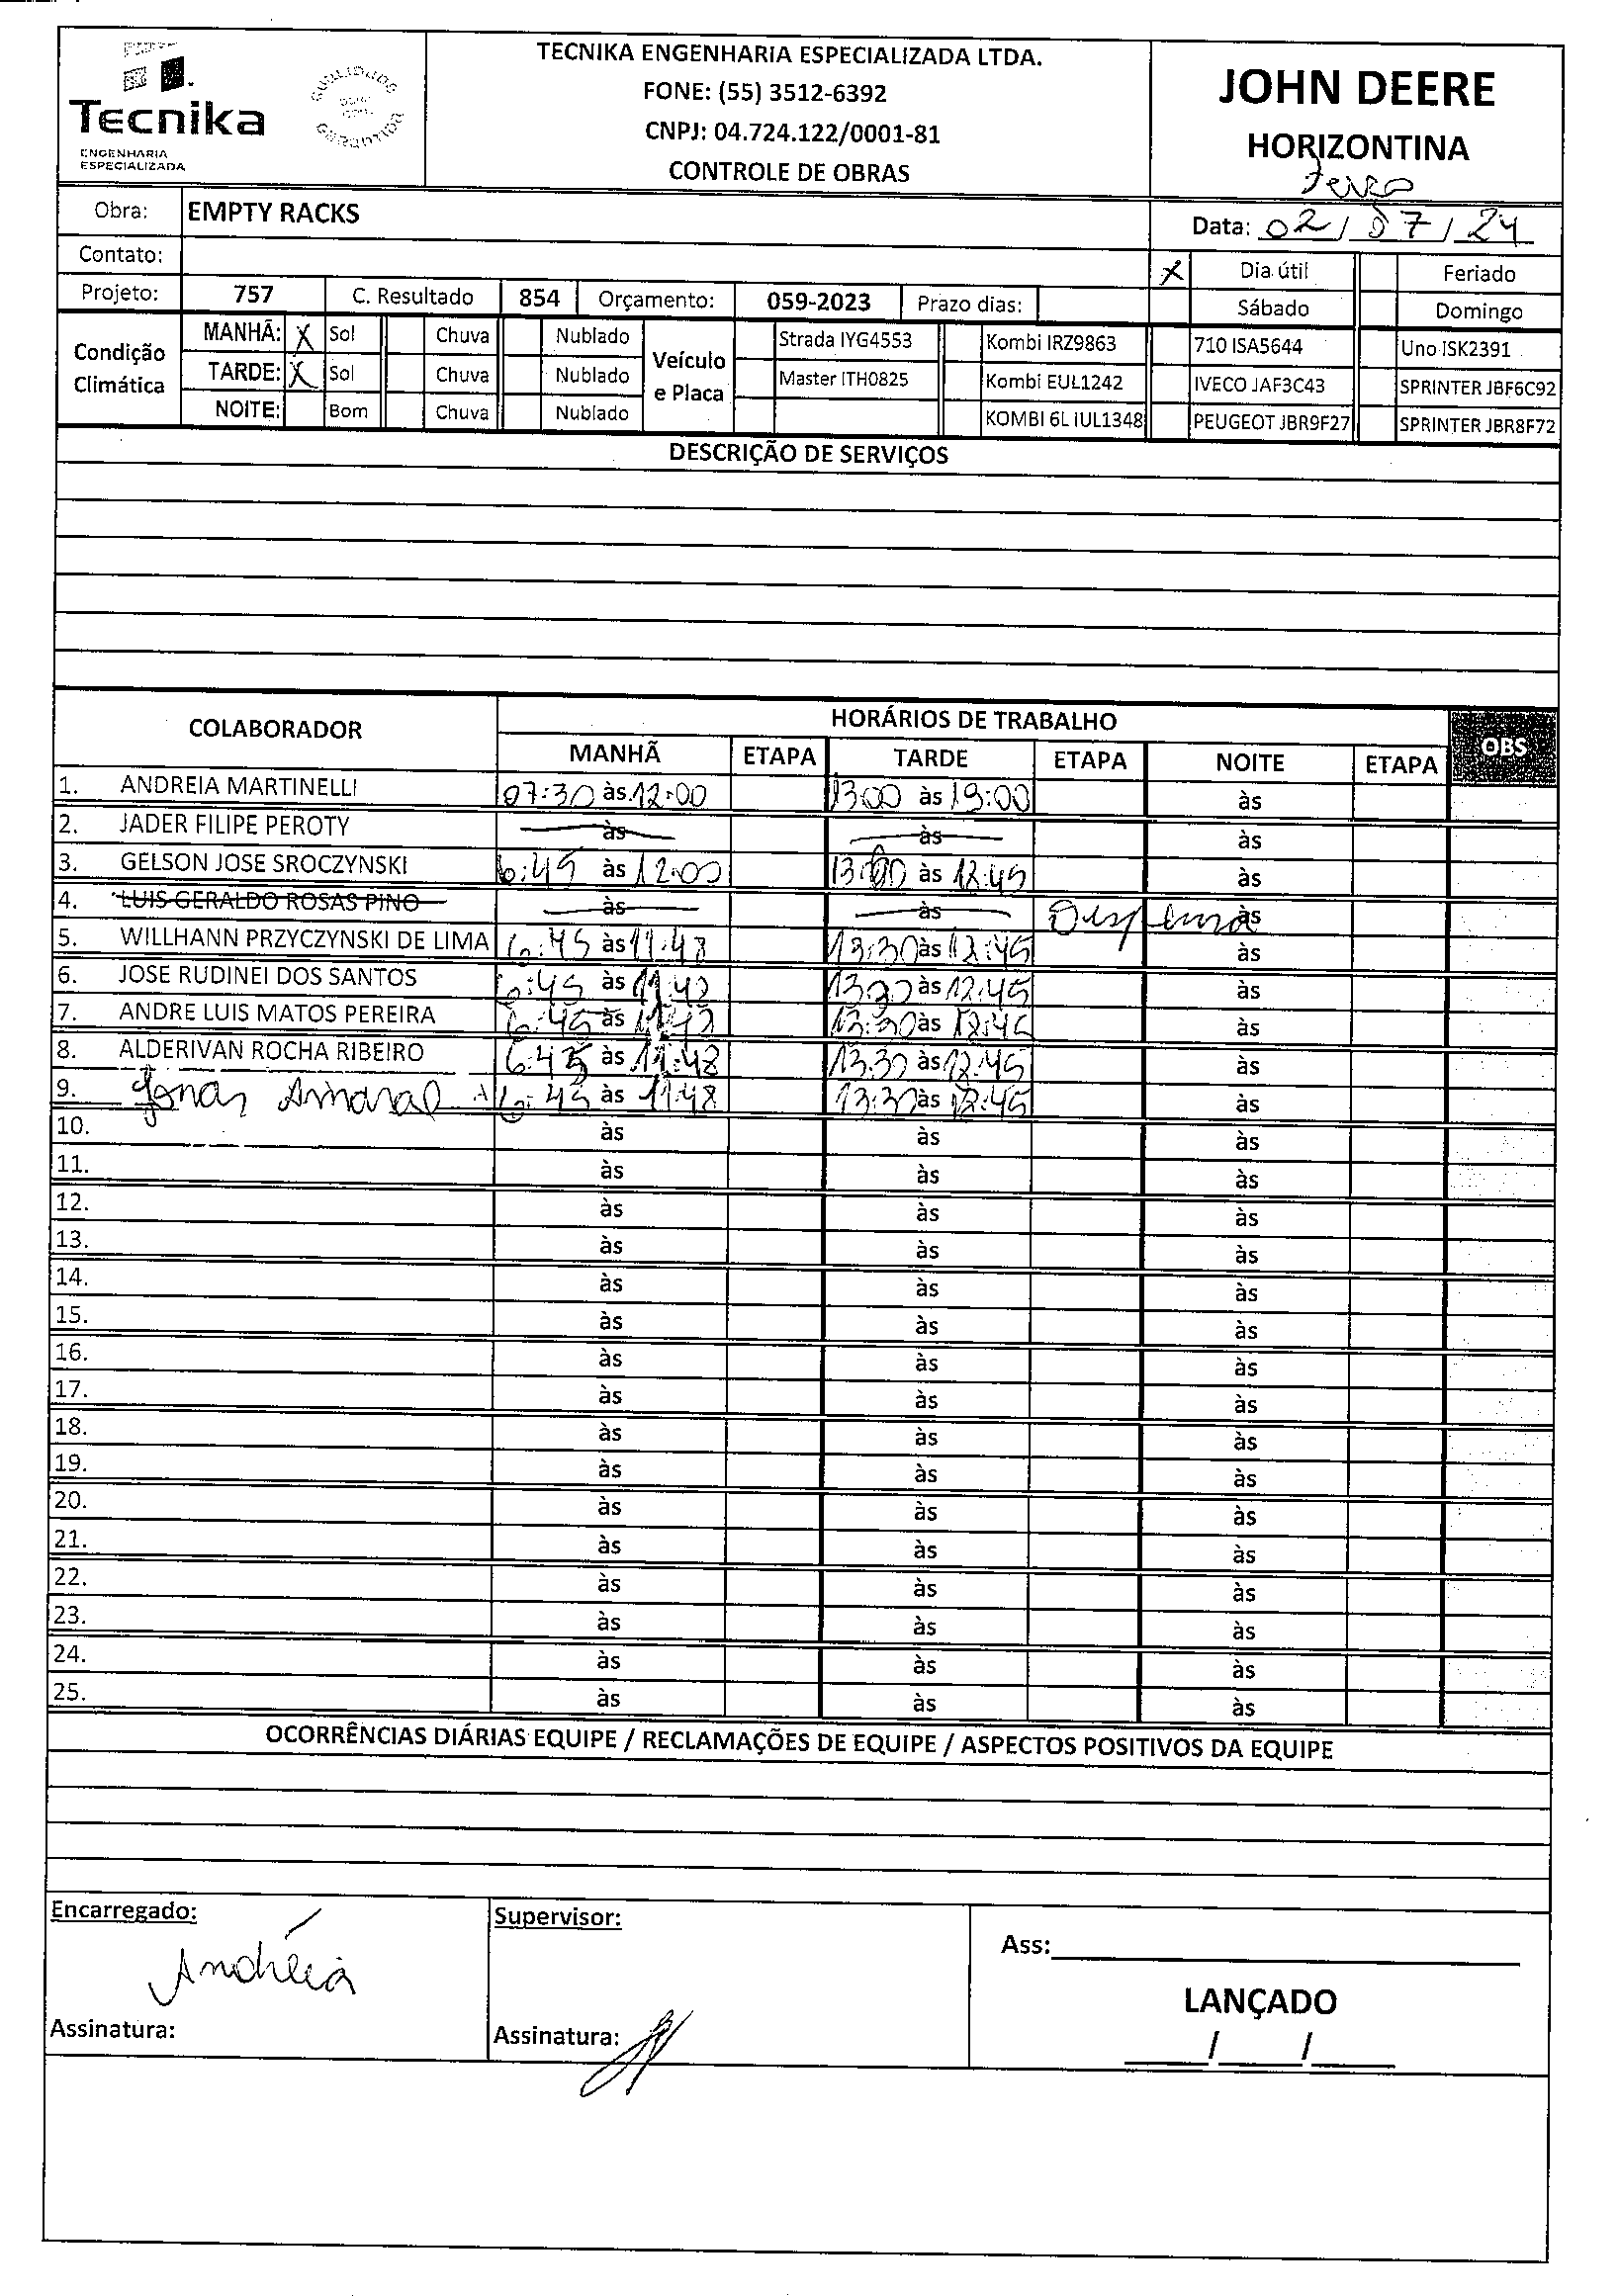 Tecnika
ENGENHARIA
ESPECIALIZADA
TECNIKA ENGENHARIA ESPECIALIZADA LTDA.
FONE: (55) 3512-6392
CNPJ: 04.724.122/0001-81
CONTROLE DE OBRAS
JOHN DEERE
HORIZONTINA
Obra: EMPTY RACKS
Data: 02/07/24
Contato:
X Dia útil Feriado
Projeto: 757 C. Resultado 854 Orçamento: 059-2023 Prazo dias:
Sábado Domingo
Condição Climática
MANHÃ: X Sol Chuva Nublado
TARDE: X Sol Chuva Nublado
NOITE: Bom Chuva Nublado
Veículo e Placa
Strada IYG4553 Kombi IRZ9863 710 ISA5644 Uno ISK2391
Master ITH0825 Kombi EUL1242 IVECO JAF3C43 SPRINTER JBF6C92
KOMBI 6L IUL1348 PEUGEOT JBR9F27 SPRINTER JBR8F72
DESCRIÇÃO DE SERVIÇOS
COLABORADOR HORÁRIOS DE TRABALHO OBS
MANHÃ ETAPA TARDE ETAPA NOITE ETAPA
1. ANDREIA MARTINELLI 07:30 às 12:00 13:00 às 19:00 às
2. JADER FILIPE PEROTY às às às
3. GELSON JOSE SROCZYNSKI 6:45 às 12:00 13:00 às 12:45 às
4. LUIS GERALDO ROSAS PINO às às às
5. WILLHANN PRZYCZYNSKI DE LIMA 6:45 às 11:48 13:30 às 12:45 às
6. JOSE RUDINEI DOS SANTOS 6:45 às 11:48 13:30 às 12:45 às
7. ANDRE LUIS MATOS PEREIRA 6:45 às 13:30 às 12:45 às
8. ALDERIVAN ROCHA RIBEIRO 6:45 às 11:48 13:30 às 12:45 às
9. Jonas Amaral 6:45 às 11:48 13:30 às 12:45 às
10. às às às
11. às às às
12. às às às
13. às às às
14. às às às
15. às às às
16. às às às
17. às às às
18. às às às
19. às às às
20. às às às
21. às às às
22. às às às
23. às às às
24. às às às
25. às às às
OCORRÊNCIAS DIÁRIAS EQUIPE / RECLAMAÇÕES DE EQUIPE / ASPECTOS POSITIVOS DA EQUIPE
Encarregado: Supervisor:
Ass:
Andréia
LANÇADO
Assinatura: Assinatura:
/ /